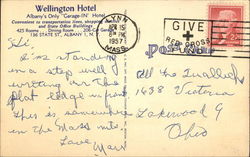 Wellington Hotel
Albany's Only "Garage-IN" Hotel
Convenient to transportation lines, shopping
and State Office Buildings
425 Rooms 200 Car Garage
136 STATE ST., ALBANY 1, N.Y.
LYNN
APR 15
6 PM
1957
MASS.
GIVE
RED CROSS
Post Card
Hi
I'm standing
in a step well
writing on this
flat ledge in front
this is somewhere
in the Mass
Love
All the Gualley
1638 Victoria
Lakewood 9
Ohio